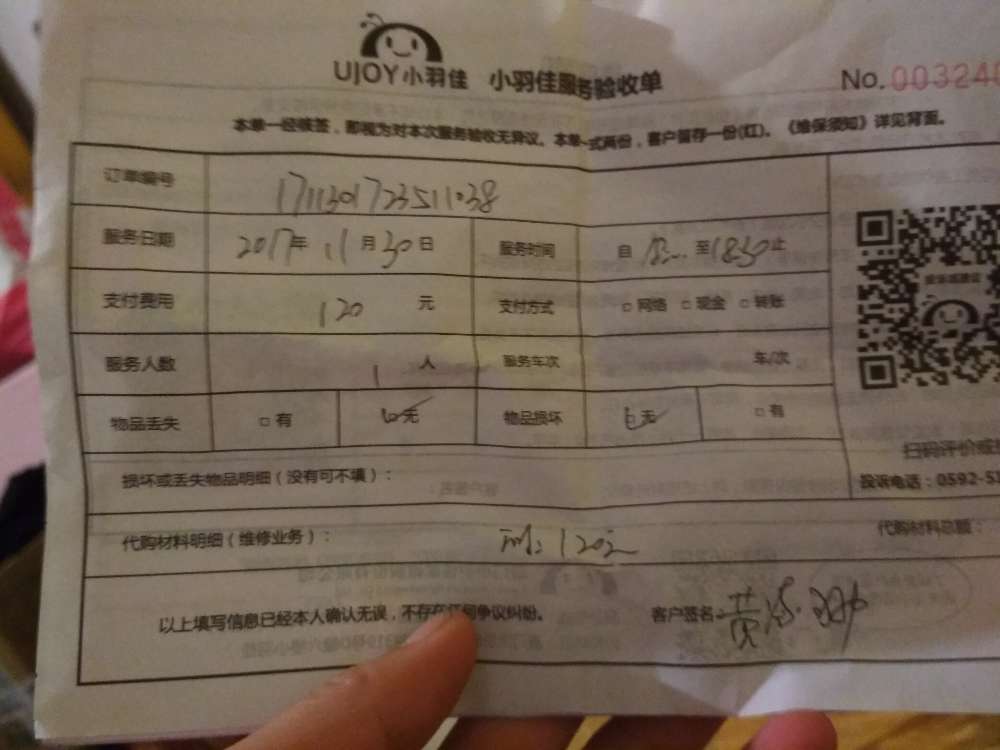 UJOY小羽佳 小羽佳服务验收单
No.003240
本单一经核签，即视为对本次服务验收无异议。本单一式两份，客户留存一份(红)。《维保须知》详见背面。
订单编号 1711301723511038
服务日期 2017年 11月30日 服务时间 自 至1830止
支付费用 120 元 支付方式 □网络 □现金 □转账
服务人数 1 人 服务车次 车/次
物品丢失 □有 □无 物品损坏 □无 □有
扫码评价或
损坏或丢失物品明细（没有可不填）：
投诉电话：0592-5
代购材料明细（维修业务）： 120元
代购材料总额：
以上填写信息已经本人确认无误，不存在任何争议纠纷。 客户签名 黄